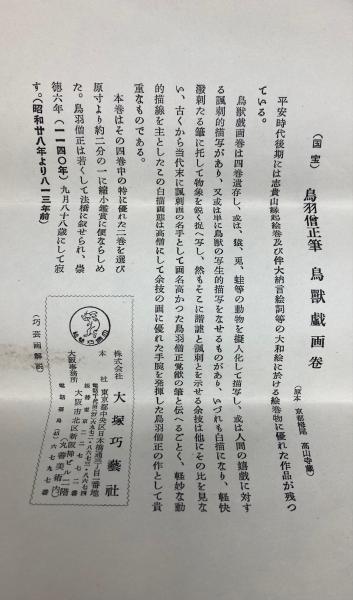 （国宝）鳥羽僧正筆　鳥獣戯画巻
（原本　京都栂尾　高山寺蔵）
平安時代後期には志貴山縁起絵巻及び伴大納言絵詞等の大和絵に於ける絵巻物に優れた作品が残つ
ている。
鳥獣戯画巻は四巻遺存し、或は、猿、兎、蛙等の動物を擬人化して描写し、或は人間の嬉戯に対す
る諷刺的描写があり、又或は単に鳥獣の写生的描写をなせるものがあり、いづれも白描になり、軽快
潑剌たる筆に托して物象を鋭く捉へ写し、然もそこに諧謔と諷刺とを示せる余技は他にその比を見な
い、古くから当代末に諷刺画の名手として画名高かつた鳥羽僧正覚猷の筆と伝へるごとく、軽妙な動
的描線を主としたこの白描画態は高僧にして余技の画に優れた手腕を発揮した鳥羽僧正の作として貴
重なものである。
本巻はその四巻中の特に優れた二巻を選び
原寸より約二分の一に縮小鑑賞に便ならしめ
た。鳥羽僧正は若くして法橋に叙せられ、崇
徳六年（一一四〇年）九月八十八歳にして寂
す。（昭和廿八年より八一三年前）
（巧芸画解説）
株式会社　大塚巧藝社
本社　東京都中央区日本橋通三丁目二番地
大阪事務所　大阪市北区新阪神ビル二階
（丸善美術部内）